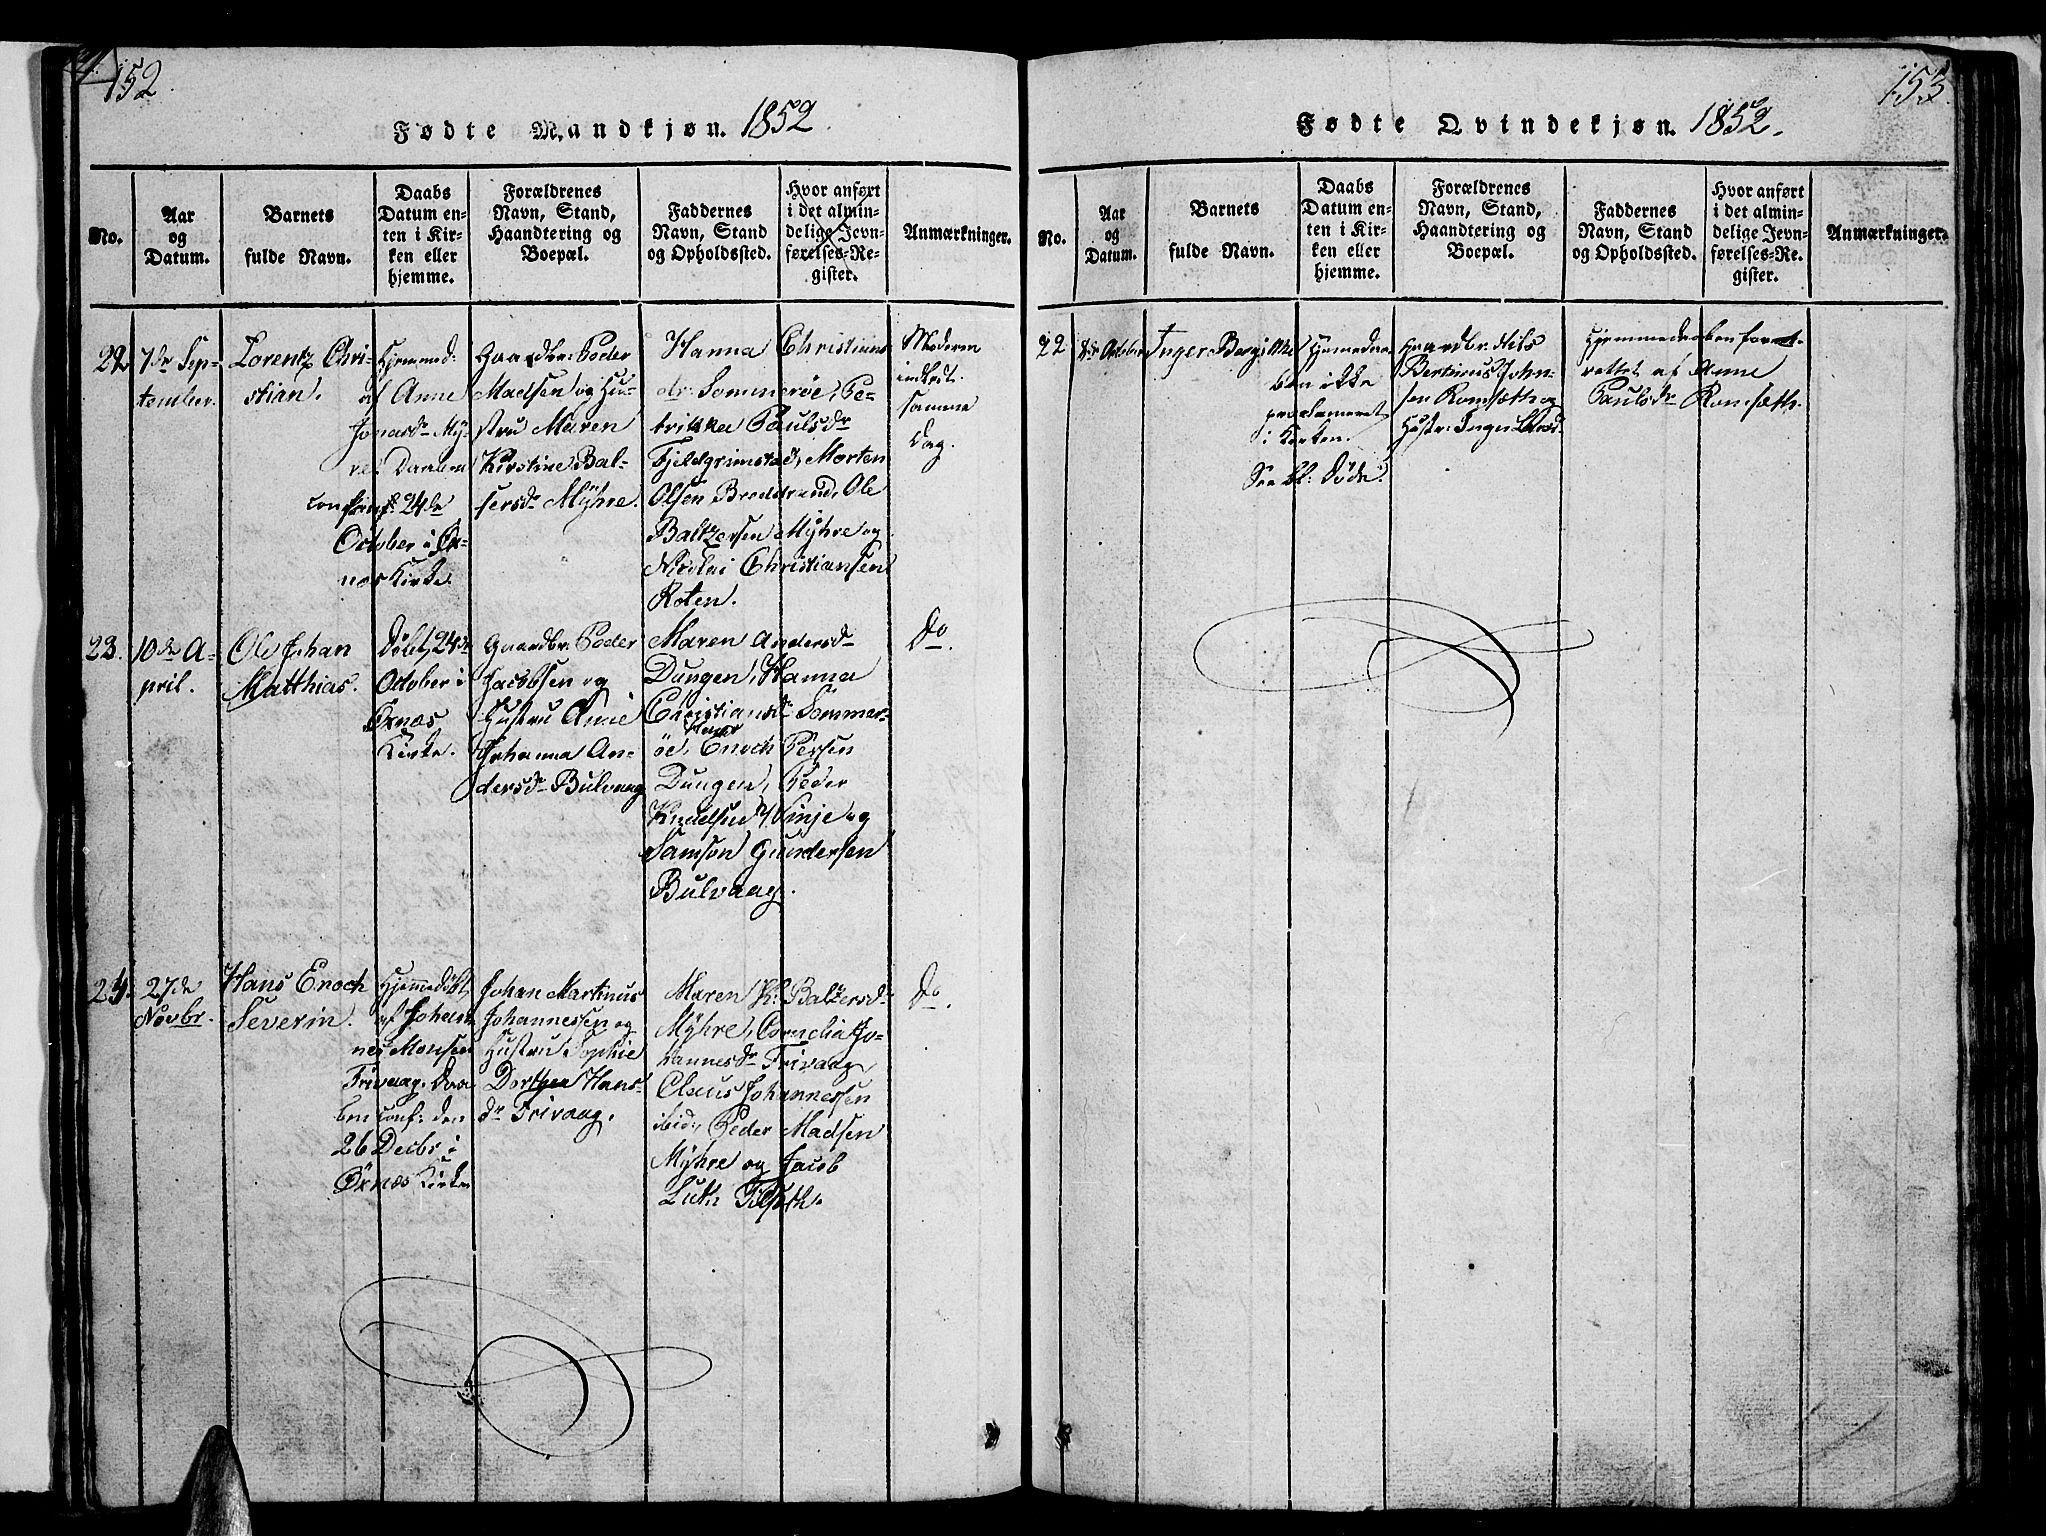 152.
Fødte Mandkjøn. 1852.
No.
Aar
og
Datum.
Barnets
fulde Navn.
Daabs
Datum en-
ten i Kir-
ken eller
hjemme.
Forældrenes
Navn, Stand,
Haandtering og
Boepæl.
Faddernes
Navn, Stand
og Opholdssted.
Hvor anført
i det almin-
delige Jevn-
førelses-Re-
gister.
Anmærkninger.
22
7de Sep-
tember.
Lorentz Chri-
stian.
Hjemmed:
af Anne
Jonasdr My-
re. Daaben
conf: 24de
October i Ør-
næs Kirke.
Gaardbr: Peder
Madsen og Hu-
stru Maren
Kirstine Bal-
sersdr Mÿhre.
Hanna Christians
dr Sommerøe, Pe-
trikka Paulsdr
Fjeldgrimstad, Morten
Olsen Bredstrand, Ole
Baltzersen Mÿhre og
Nicolai Christiansen
Roten.
Moderen
indledt
samme
Dag.
23.
10de A-
pril.
Ole Johan
Matthias.
Døbt 24de
October i
Ørnæs
Kirke.
Gaardbr: Peder
Jacobsen og
Hustru Anne
Johanna An-
dersdr Bulvaag
Maren Andersdr
Dungen, Hanna
Christiansdr Sommer-
øe, Enoch Persen
Dungen, Peder
Knudsen Vinje og
Samson Gundersen
Bulvaag.
Do.
24.
27de
Novbr.
Hans Enoch
Severin.
Hjemmedøbt
af Johan-
nes Monsen
Frivaag. Daa-
ben conf: den
26 Decbr i
Ørnæs Kirke
Johan Martinus
Johannessen og
Hustru Sophie
Dorthea Hans-
dr Frivaag.
Maren K. Baltzersdr
Mÿhre, Cornelia Jo-
hannesdr Frivaag
Claus Johannessen
ibid, Peder Madsen
Mÿhre og Jacob
Luth
Do.
153.
Fødte Qvindekjøn. 1852.
No.
Aar
og
Datum.
Barnets
fulde Navn.
Daabs
Datum en-
ten i Kir-
ken eller
hjemme.
Forældrenes
Navn, Stand,
Haandtering og
Boepæl.
Faddernes
Navn, Stand
og Opholdssted.
Hvor anført
i det almin-
delige Jevn-
førelses-Re-
gister.
Anmærkninger.
22.
8de October
Inger Bergitte
Hjemmedaa-
ben ikke
proclameret
i Kirken.
See bl: Døde.
Gaardbr. Nils
Bertinus John-
sen Romsæth og
Hustr: Inger
Hjemmedaaben forret-
rettet af Anne
Paulsdr Romsæth.